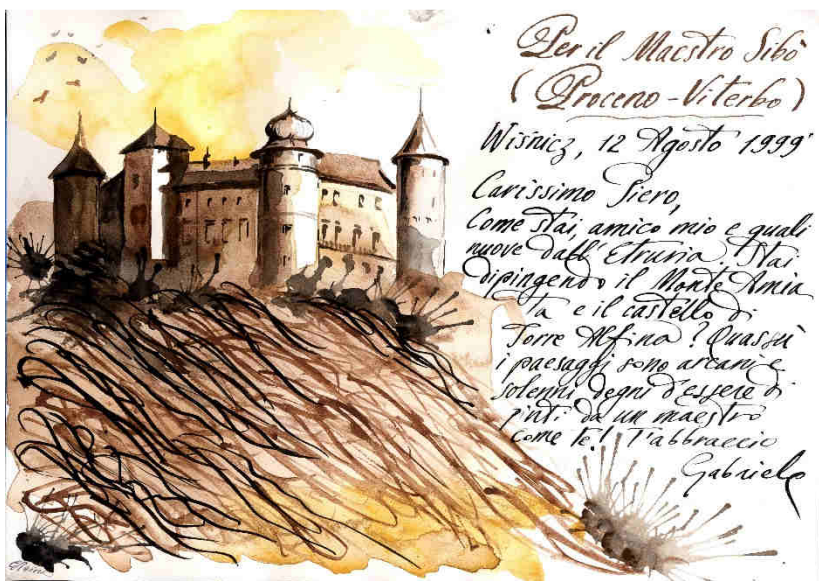 Per il Maestro Sibò
(Proceno-Viterbo)
Wiśnicz, 12 Agosto 1999
Carissimo Piero,
Come stai, amico mio e quali
nuove dall'Etruria. Stai
dipingendo il Monte Amia
ta e il castello di
Torre Alfina? Quassù
i paesaggi sono arcani e
solenni degni d'essere di
pinti da un maestro
come te! T'abbraccio
Gabriele